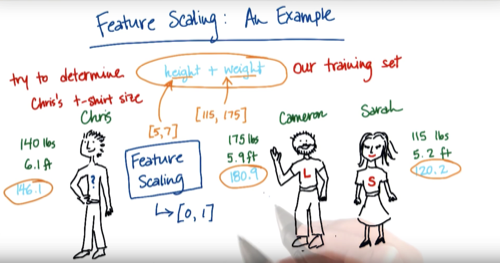 Feature Scaling: An Example
try to determine
Chris's t-shirt size
height + weight
our training set
[5,7]
[115, 175]
Chris
140 lbs
6.1 ft
146.1
?
Feature
Scaling
↳ [0,1]
Cameron
175 lbs
5.9 ft
180.9
L
Sarah
115 lbs
5.2 ft
120.2
S